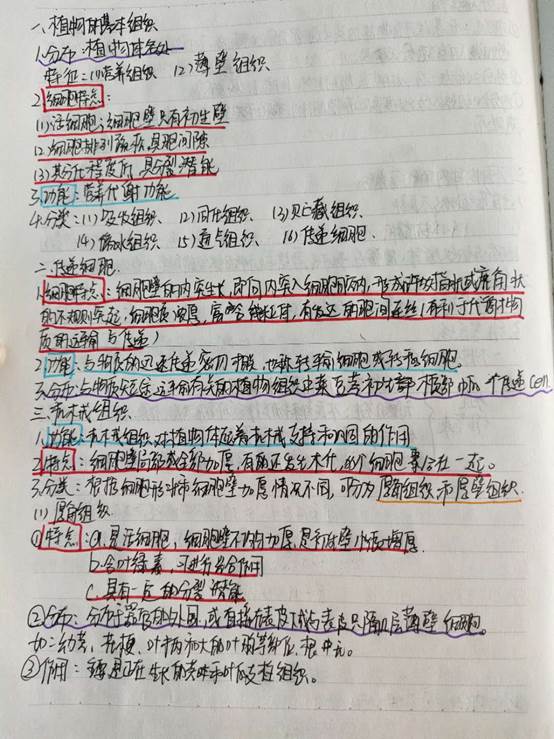 一、植物体基本组织
1.分布：植物体各处
特征：(1)营养组织 (2)薄壁组织
2.细胞特点：
(1)活细胞；细胞壁只有初生壁
(2)细胞排列疏松，具胞间隙
(3)其分化程度低，具分裂潜能
3.功能：营养代谢功能
4.分类：(1)吸收组织、(2)同化组织、(3)贮藏组织、
(4)储水组织、(5)通气组织、(6)传递细胞.
二、传递细胞.
1.细胞特点：细胞壁的内突生长，即向内突入细胞腔内，形成许多指状或鹿角状
的不规则突起，细胞质浓厚，富含线粒体，有发达的胞间连丝(有利于代谢物
质的运输与传递)
2.功能：与物质的迅速传递密切相关，也称转输细胞或转移细胞.
3.分布：与物质短途运输有关的植物组织 cell
三、机械组织
1.功能：机械组织对植物体起着机械支持和巩固的作用
2.特点：细胞壁局部或全部加厚，有的还发生木化，多个细胞聚合在一起。
3.分类：根据细胞形状和细胞壁加厚情况不同，可分为厚角组织和厚壁组织.
(1)厚角组织
①特点：a.是活细胞，细胞壁不均匀加厚，是初生壁性质增厚.
b.含叶绿素，可进行光合作用
c.具有一定的分裂潜能
②分布：分布于器官的外围，或直接在表皮下或与表皮只隔几层薄壁细胞。
如：幼茎，花梗、叶柄和大的叶脉等部位，根中无。
③作用：主要是正在生长的茎和叶的支持组织。